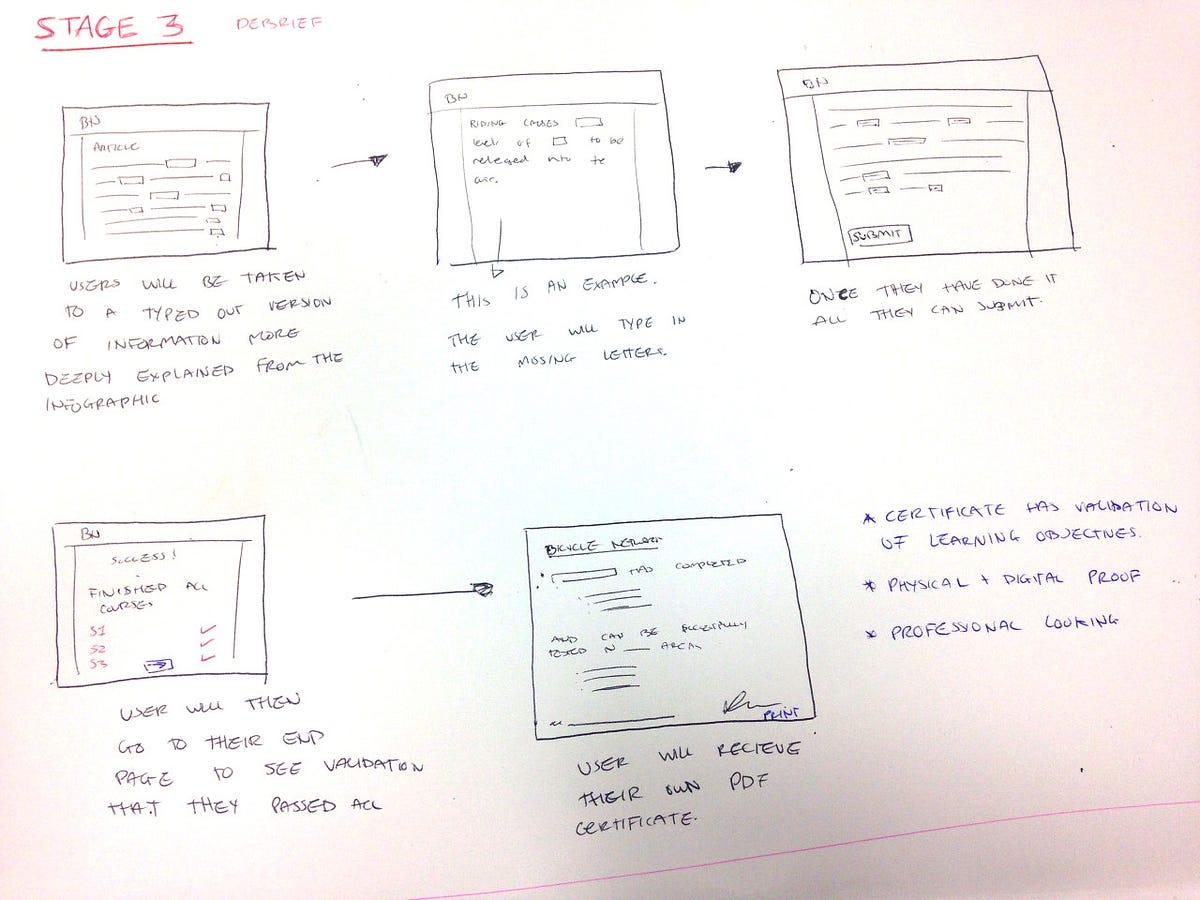 STAGE 3 DEBRIEF
BN
ARTICLE
USERS WILL BE TAKEN
TO A TYPED OUT VERSION
OF INFORMATION MORE
DEEPLY EXPLAINED FROM THE
INFOGRAPHIC
BN
RIDING CAUSES
levels of to be
released into te
air.
THIS IS AN EXAMPLE.
THE USER WILL TYPE IN
THE MISSING LETTERS.
BN
SUBMIT
ONCE THEY HAVE DONE IT
ALL THEY CAN SUBMIT.
BN
SUCCESS!
FINISHED ALL
COURSES
S1
S2
S3
USER WILL THEN
GO TO THEIR END
PAGE TO SEE VALIDATION
THAT THEY PASSED ALL
BICYCLE NETWORK
HAS COMPLETED
AND CAN BE SUCCESSFULLY
TESTED IN AREAS
PRINT
USER WILL RECIEVE
THEIR OWN PDF
CERTIFICATE.
* CERTIFICATE HAS VALIDATION
OF LEARNING OBJECTIVES.
* PHYSICAL + DIGITAL PROOF
* PROFESSIONAL LOOKING